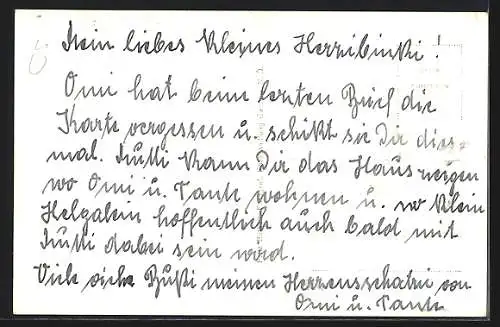 Mein liebes kleines Herzibinki!
Omi hat beim letzten Brief die
Karte vergessen u. schikt sie Dir dies-
mal. Mutti kann Dir das Haus zeigen
wo Omi u. Tante wohnen u. wo klein
Helgalein hoffentlich auch bald mit
Mutti dabei sein wird.
Viele viele Bußi meinen Herzensschatzi von
Omi u. Tante